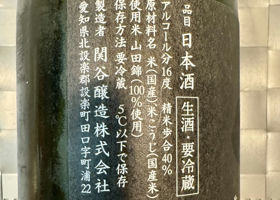 品目 日本酒 生酒・要冷蔵
アルコール分16度 精米歩合40%
原材料名 米(国産)米こうじ(国産米)
使用米 山田錦(100%使用)
保存方法 要冷蔵 5℃以下で保存
製造者 関谷醸造株式会社
愛知県北設楽郡設楽町田口字町浦22